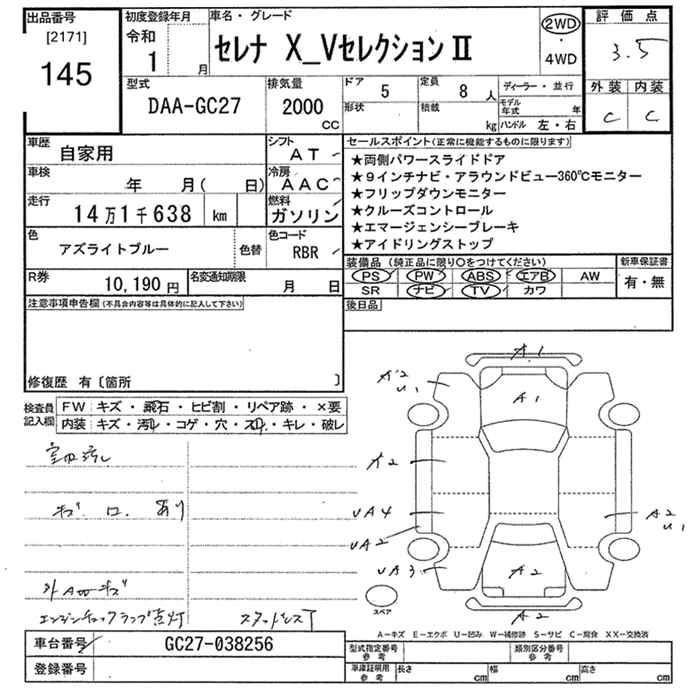 出品番号
[2171]
145
初度登録年月
令和
1 月
車名・グレード
セレナ X_VセレクションⅡ
2WD
・
4WD
評価点
3.5
外装 内装
C C
型式
DAA-GC27
排気量
2000
CC
ドア 5
形状
定員 8 人
積載 kg
ディーラー・並行
モデル年式 年
ハンドル 左・右
車歴
自家用
シフト
AT
車検
年 月( 日)
冷房
AAC
走行
14万1千638 km
燃料
ガソリン
色
アズライトブルー
色替
色コード
RBR
R券
10,190 円
名変通知期限
月 日
セールスポイント(正常に機能するものに限ります)
★両側パワースライドドア
★9インチナビ・アラウンドビュー360℃モニター
★フリップダウンモニター
★クルーズコントロール
★エマージェンシーブレーキ
★アイドリングストップ
装備品(純正品に限り○をつけてください)
PS PW ABS エアB AW
SR ナビ TV カワ
新車保証書
有・無
後日品
注意事項申告欄(不具合内容等は具体的に記入して下さい)
修復歴 有〔箇所 〕
検査員
記入欄
FW キズ・飛石・ヒビ割・リペア跡・×要
内装 キズ・汚れ・コゲ・穴・スレ・キレ・破レ
室内汚レ
キズ 口 あり
外A凹キズ
エンジンチェックランプ点灯
スタッドレスT
A1
A2
U1
A1
A2
UA4
UA2
UA3
A2
U1
A2
A2
スペア
A-キズ E-エクボ U-凹み W-補修跡 S-サビ C-腐食 XX-交換済
車台番号
GC27-038256
登録番号
型式指定番号
参考
類別区分番号
参考
車庫証明用
参考
長さ cm 幅 cm 高さ cm